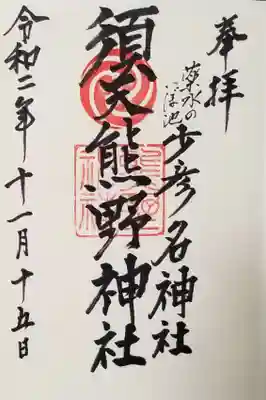 奉拝
薬水の
浮池
少彦名神社
須天熊野神社
令和二年十一月十五日